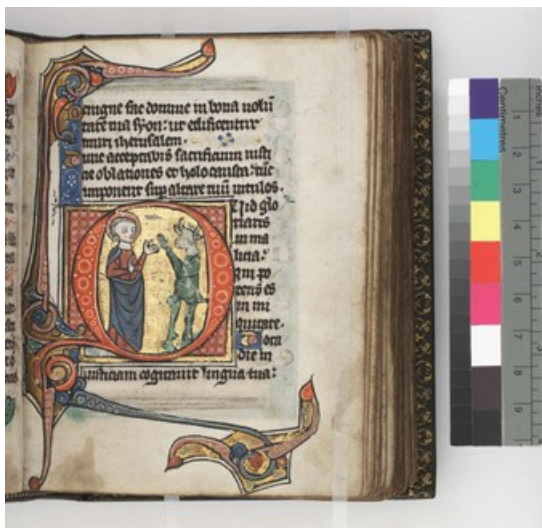 Benigne fac domine in bona uolū
tate tua syon: ut edificentur
muri iherusalem.
Tunc acceptabis sacrificium iusti
cie oblationes et holocausta: tūc
imponent sup altare tuū uitulos.
Quid glo
riaris
in ma
licia:
qui po
tens es
in ini
quitate.
Tota
die in
iusticiam cogitauit lingua tua:
Centimetres
Inches
1
2
3
4
5
6
8
9